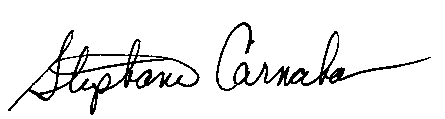 Stephanie Carnaha